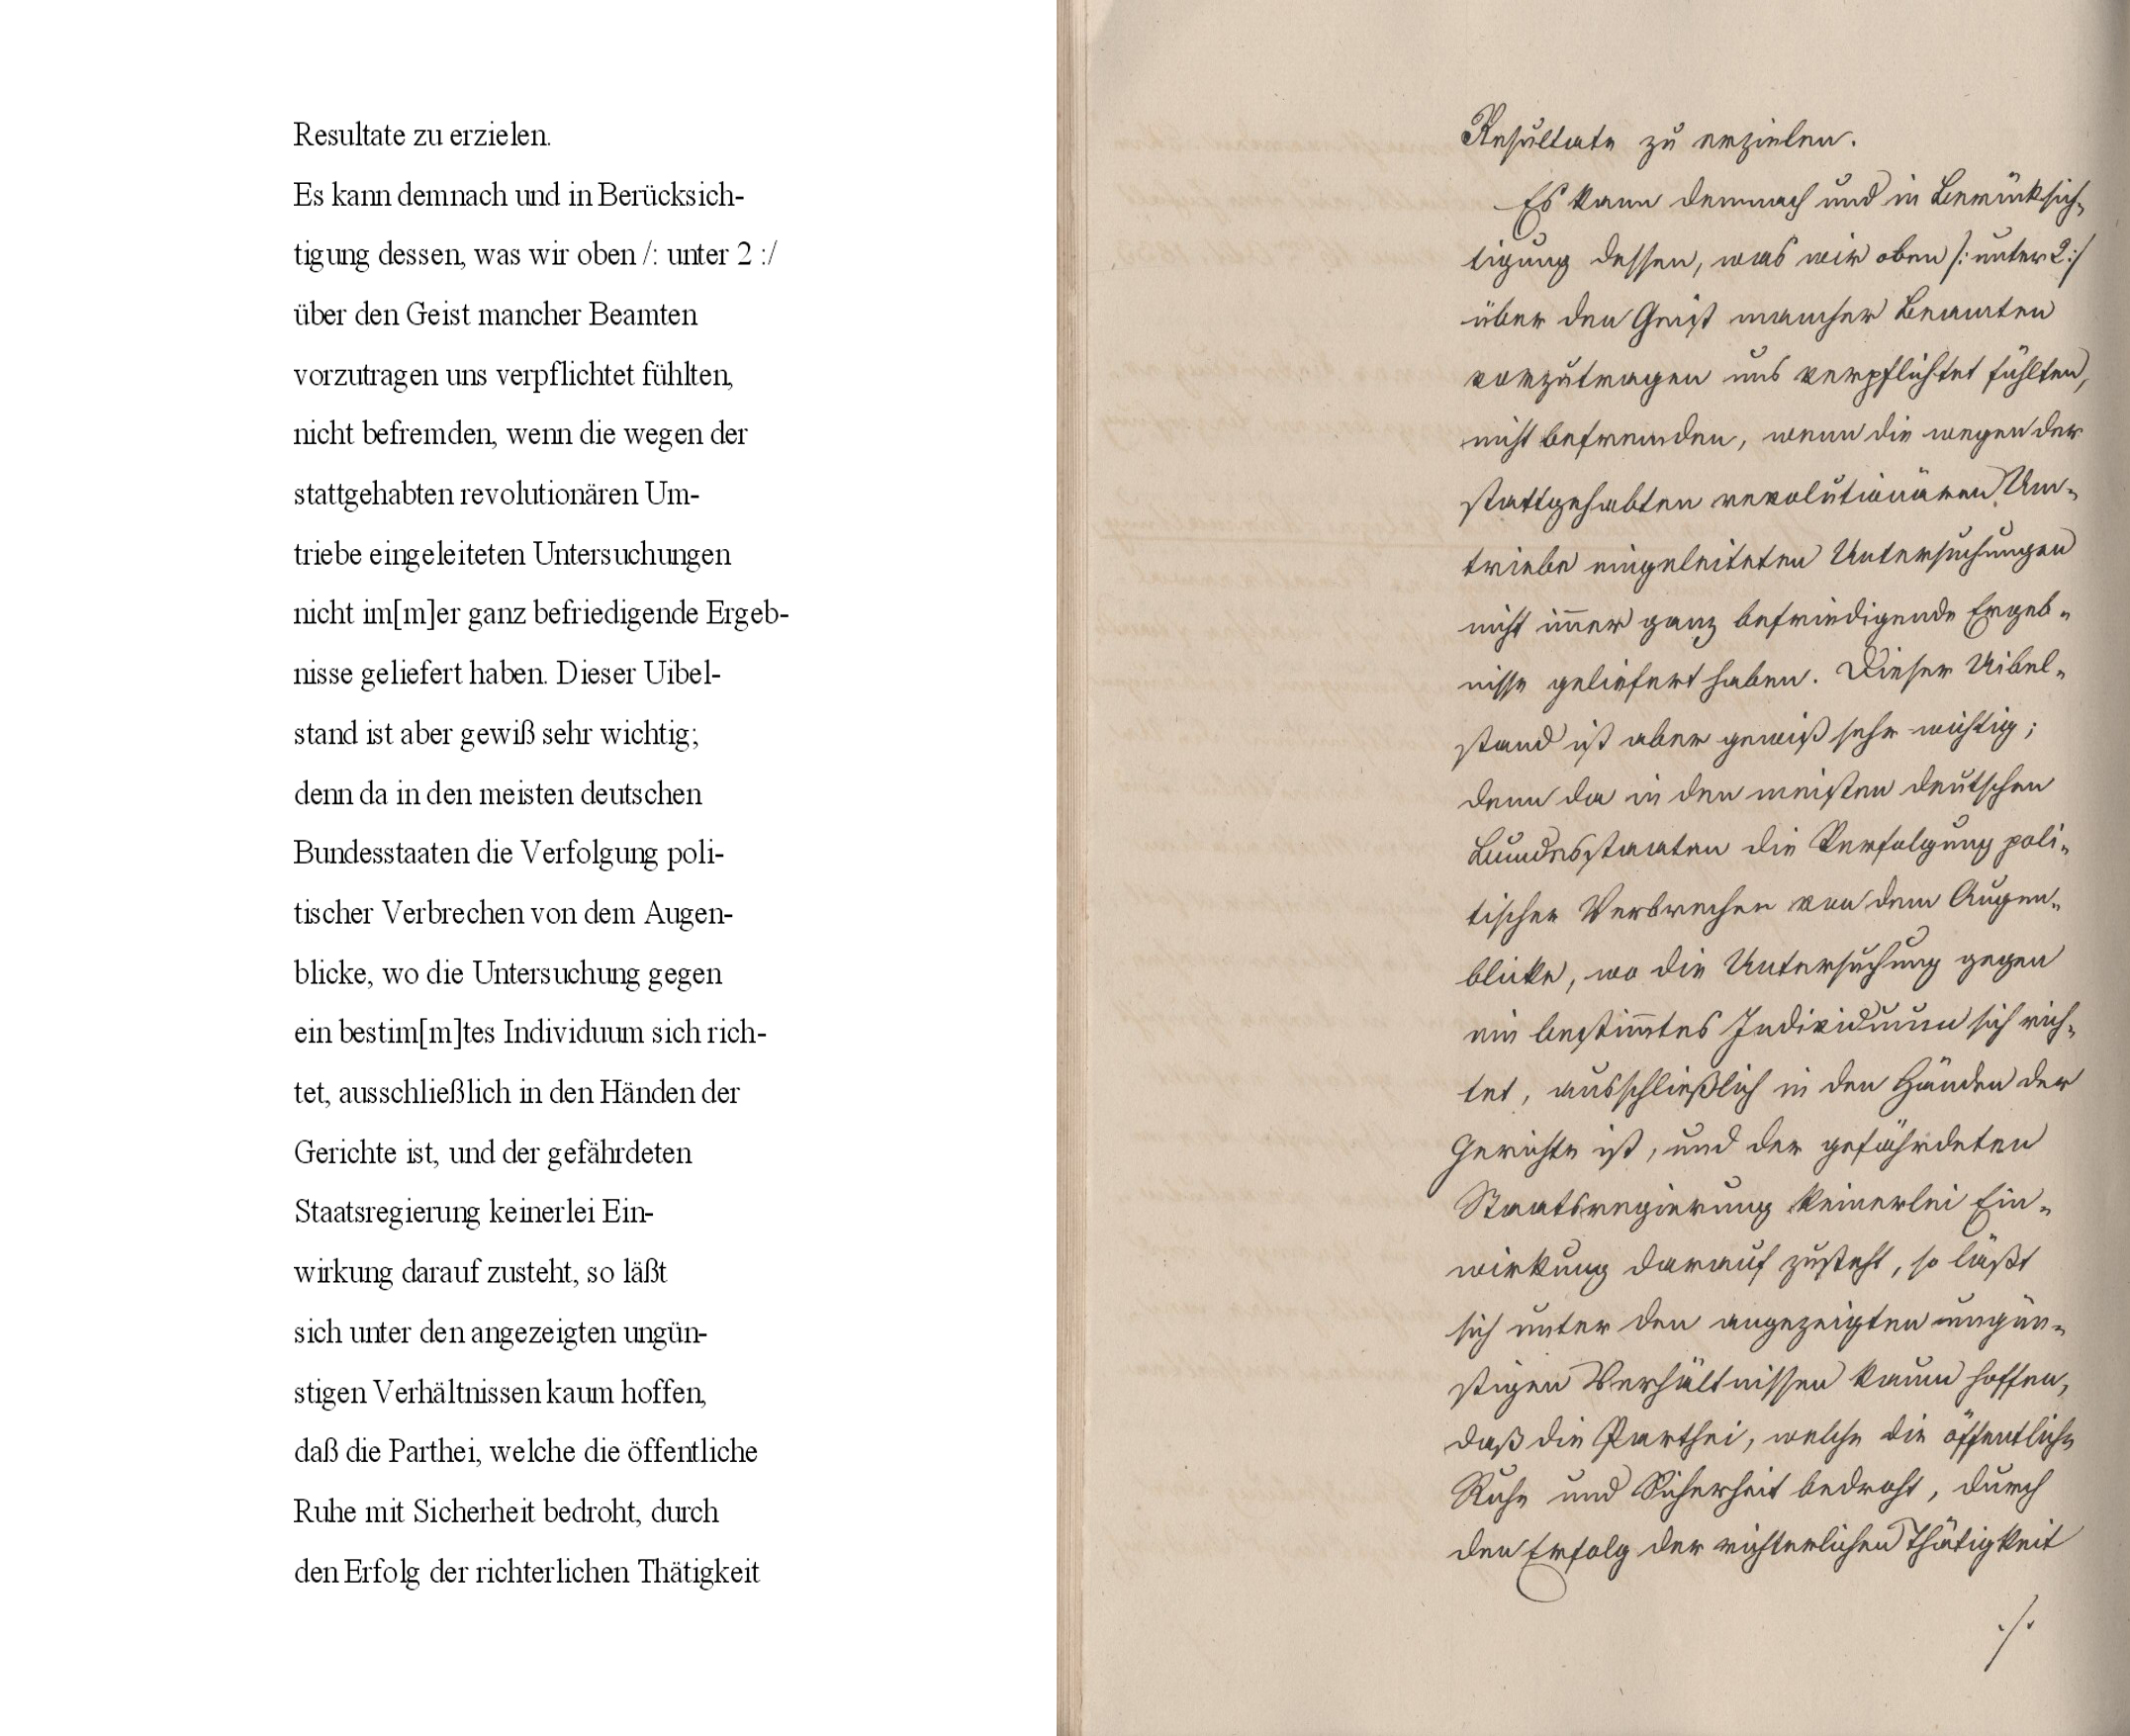 Resultate zu erzielen.
Es kann demnach und in Berücksich-
tigung dessen, was wir oben /: unter 2 :/
über den Geist mancher Beamten
vorzutragen uns verpflichtet fühlten,
nicht befremden, wenn die wegen der
stattgehabten revolutionären Um-
triebe eingeleiteten Untersuchungen
nicht im[m]er ganz befriedigende Ergeb-
nisse geliefert haben. Dieser Uibel-
stand ist aber gewiß sehr wichtig;
denn da in den meisten deutschen
Bundesstaaten die Verfolgung poli-
tischer Verbrechen von dem Augen-
blicke, wo die Untersuchung gegen
ein bestim[m]tes Individuum sich rich-
tet, ausschließlich in den Händen der
Gerichte ist, und der gefährdeten
Staatsregierung keinerlei Ein-
wirkung darauf zusteht, so läßt
sich unter den angezeigten ungün-
stigen Verhältnissen kaum hoffen,
daß die Parthei, welche die öffentliche
Ruhe mit Sicherheit bedroht, durch
den Erfolg der richterlichen Thätigkeit
Resultate zu erzielen.
Es kann demnach und in Berücksich-
tigung dessen, was wir oben /: unter 2 :/
über den Geist mancher Beamten
vorzutragen uns verpflichtet fühlten,
nicht befremden, wenn die wegen der
stattgehabten revolutionären Um-
triebe eingeleiteten Untersuchungen
nicht im̅er ganz befriedigende Ergeb-
nisse geliefert haben. Dieser Uibel-
stand ist aber gewiß sehr wichtig;
denn da in den meisten deutschen
Bundesstaaten die Verfolgung poli-
tischer Verbrechen von dem Augen-
blicke, wo die Untersuchung gegen
ein bestim̅tes Individuum sich rich-
tet, ausschließlich in den Händen der
Gerichte ist, und der gefährdeten
Staatsregierung keinerlei Ein-
wirkung darauf zusteht, so läßt
sich unter den angezeigten ungün-
stigen Verhältnissen kaum hoffen,
daß die Parthei, welche die öffentliche
Ruhe und Sicherheit bedroht, durch
den Erfolg der richterlichen Thätigkeit
./.